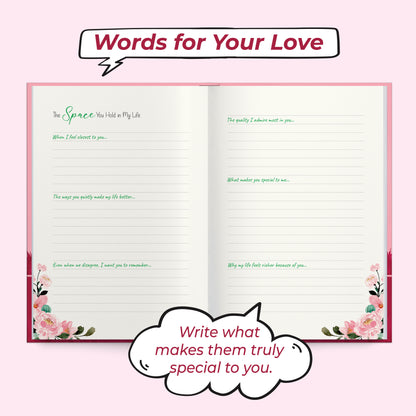 Words for Your Love
The Space You Hold in My Life
When I feel closest to you...
The ways you quietly make my life better...
Even when we disagree, I want you to remember...
The quality I admire most in you...
What makes you special to me...
Why my life feels richer because of you...
Write what
makes them truly
special to you.